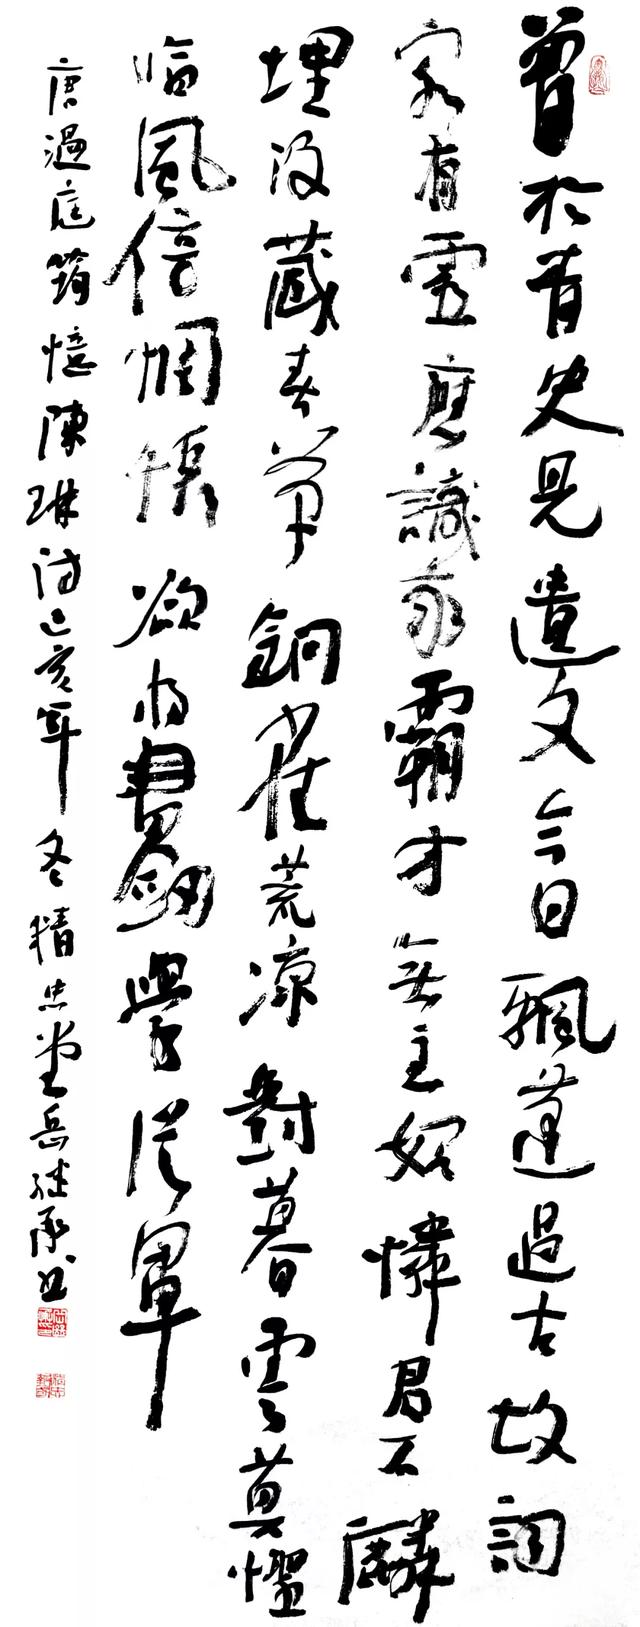 曾於青史見遺文今日飄蓬過古坟詞
客有靈應識我霸才無主始憐君石麟
埋没藏春草銅雀荒凉對暮雲莫
临風倍惆悵欲将書劍學從軍
唐温庭筠憶陳琳詩己亥年冬精忠堂岳继承书